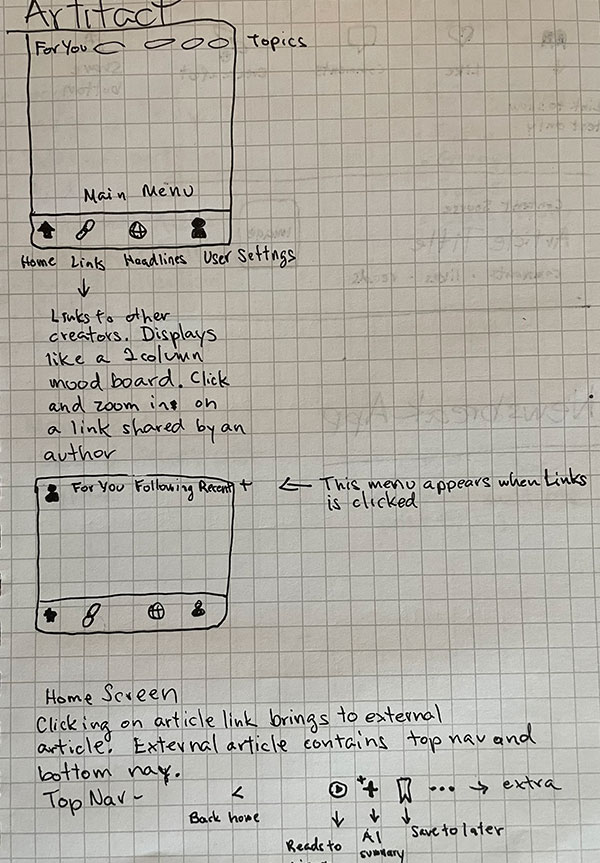 Artifact
For You Topics
Main Menu
Home Links Headlines User Settngs
Links to other
creators. Displays
like a 2 column
mood board. Click
and zoom in on
a link shared by an
author
For You Following Recent + ← This menu appears when Links
is clicked
Home Screen
Clicking on article link brings to external
article. External article contains top nav and
bottom nav.
Top Nav - < ... → extra
Back home Reads to AI Save to later
summary